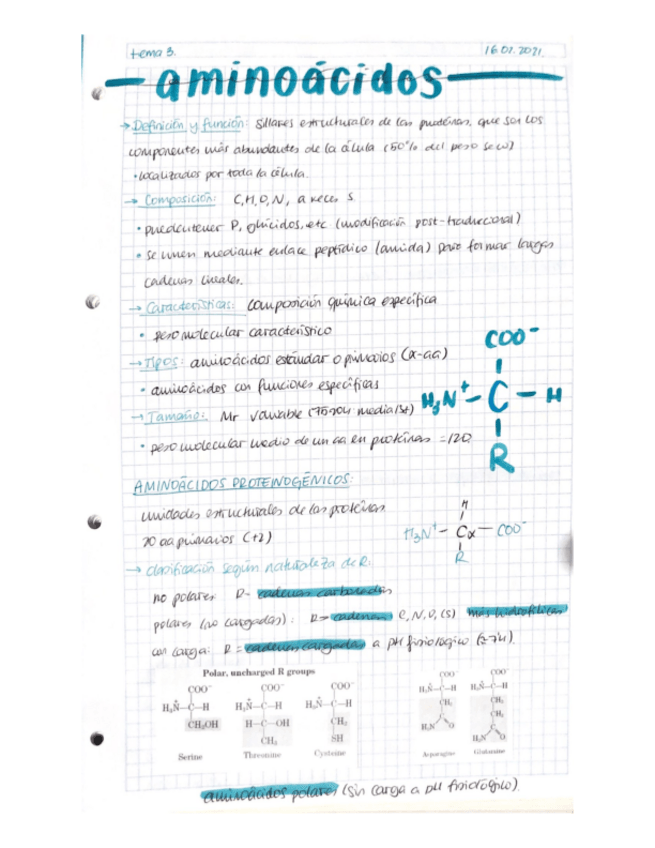 tema 3. 16.02.2021.
aminoácidos
→ Definición y función: Sillares estructurales de las proteínas, que son los
componentes más abundantes de la célula (50% del peso seco)
• localizados por toda la célula.
→ Composición: C, H, O, N, a veces S
• pueden tener P, glúcidos, etc (modificación post-traduccional)
• se unen mediante enlace peptídico (amida) para formar largas
cadenas lineales.
→ Características: composición química específica
• peso molecular característico
→ Tipos: aminoácidos estándar o primarios (α-aa)
• aminoácidos con funciones específicas
→ Tamaño: Mr variable
• peso molecular medio de un aa en proteínas = 120
COO⁻
H₃N⁺ – C – H
R
AMINOÁCIDOS PROTEINOGÉNICOS:
unidades estructurales de las proteínas
20 aa primarios (+2)
H
H₃N⁺ – Cα – COO⁻
R
→ clasificación según naturaleza de R:
no polares R= cadenas carbonadas
polares (no cargadas): R= cadenas C, N, O, (S) más hidrofílicas
con carga: R = cadenas cargadas a pH fisiológico
Polar, uncharged R groups
COO⁻ COO⁻ COO⁻ COO⁻ COO⁻
H₃N⁺–C–H H₃N⁺–C–H H₃N⁺–C–H H₃N⁺–C–H H₃N⁺–C–H
CH₂OH H–C–OH CH₂ CH₂ CH₂
CH₃ SH C CH₂
H₂N O C
H₂N O
Serine Threonine Cysteine Asparagine Glutamine
aminoácidos polares (sin carga a pH fisiológico)